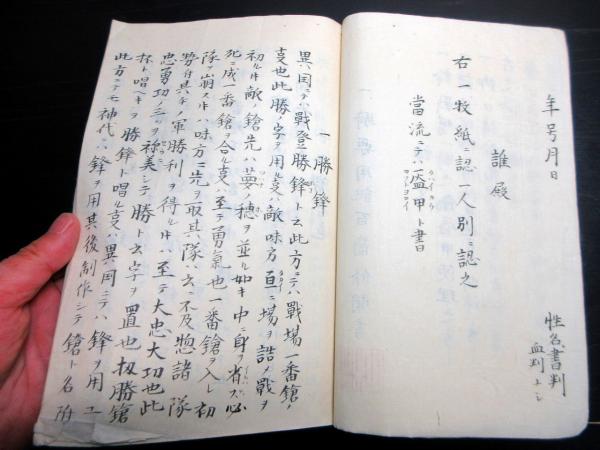 年号月日
誰殿
性名書判
血判ナシ
右一牧紙認一人別ニ認之
當流ニテハ盔甲ト書
一勝鋒
異国ニテハ戰登勝鋒ト云此方ニテハ戰場一番鎗ノ
支也此勝ノ字ヲ用ル支ハ敵味方亘ニ場ヲ詰ノ戰ヲ
初ル時敵ノ鎗先ハ蔓ノ穂ヲ並ル如キ中ニ身ヲ省ス必
死ニ成一番鎗ヲ合ル支ハ至テ勇氣也一番鎗ヲ入レ初
隊ヲ崩ス時ハ味方ニ先ヲ取其隊ハ云ニ不及惣諸隊
勢付其手ノ軍勝利ヲ得ル時ハ至テ大忠大功也此
忠勇功ノ三ヲ称美シテ勝ト云字ヲ置也扨勝鎗
杯ト唱ヘキヲ勝鋒ト唱ル支ハ異国ニテハ鋒ヲ用ユ
此方ニテモ神代ハ鋒ヲ用其後制作シテ鎗ト名附